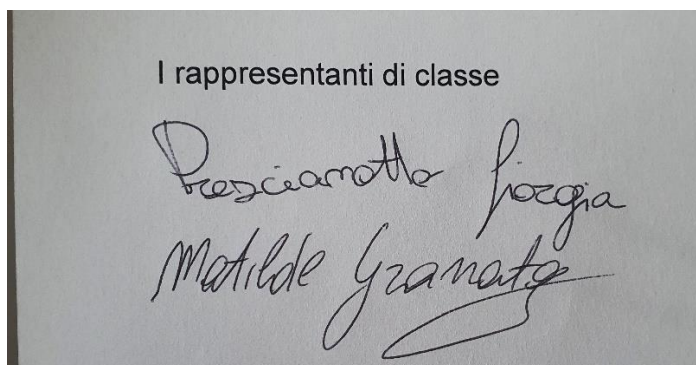 I rappresentanti di classe
Prescianotto Giorgia
Matilde Granata